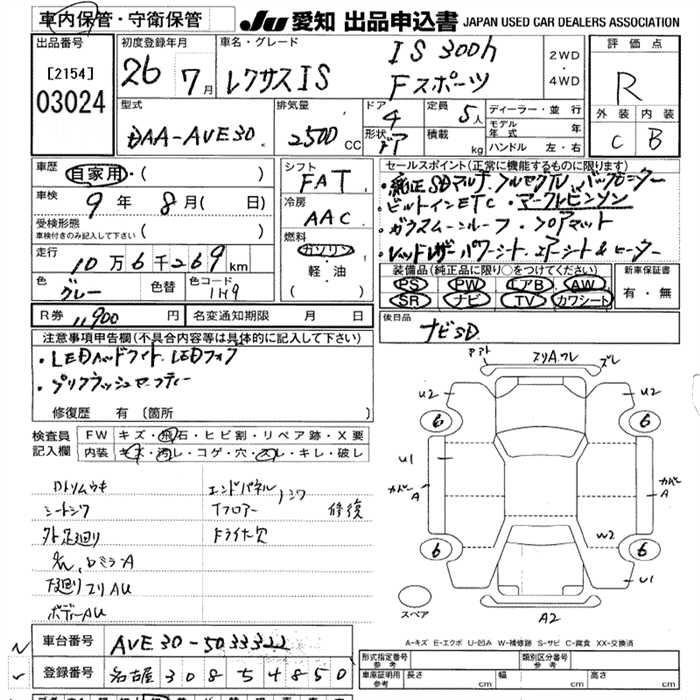 車内保管・守衛保管
JU 愛知 出品申込書 JAPAN USED CAR DEALERS ASSOCIATION
出品番号
[2154]
03024
初度登録年月
26 7月
車名・グレード
レクサスIS
IS 300h
Fスポーツ
2WD
・
4WD
評価点
R
外装 内装
C B
型式
DAA-AVE30
排気量
2500 CC
ドア
4
形状
ドア
定員
5人
積載
kg
ディーラー・並行
モデル年式 年
ハンドル 左・右
車歴
自家用・( )
車検
9年 8月( 日)
受検形態
車検付きのみ記入して下さい ( )
走行
10万6千269km
色
グレー
色替
色コード
1H9
シフト
FAT
冷房
AAC
燃料
ガソリン
・
軽・油
( )
セールスポイント(正常に機能するものに限ります)
・純正SDマルチ フルセグTV バックモニター
・ビルトインETC・マークレビンソン
・ガラスムーンルーフ・フロアマット
・レッドレザーパワーシート、エアーシート&ヒーター
装備品(純正品に限り○をつけてください)
PS PW エアB AW
SR ナビ TV カワシート
新車保証書
有・無
R券 11,900円
名変通知期限 月 日
後日品
ナビSD
注意事項申告欄(不具合内容等は具体的に記入して下さい)
・LEDヘッドライト LEDフォグ
・プリクラッシュセーフティー
修復歴 有(箇所 )
検査員記入欄
FW キズ・飛石・ヒビ割・リペア跡・X要
内装 キズ・汚れ・コゲ・穴・スレ・キレ・破レ
Dトリムウキ
シートシワ
外装廻り
下廻りスリAU
ボディーAU
エンドパネル シワ
Tフロアー 修復
ドライナ欠
スリA.ワレ ズレ
U2 U2
6 6
U1
カバーA カバーA
W2
6 6
U1
スペア
A2
A-キズ E-エクボ U-凹み W-補修跡 S-サビ C-腐食 XX-交換済
車台番号 AVE30-5033322
登録番号 名古屋 308 5 4850
形式指定番号
参考
類別区分番号
参考
車庫証明用
参考
長さ cm 幅 cm 高さ cm